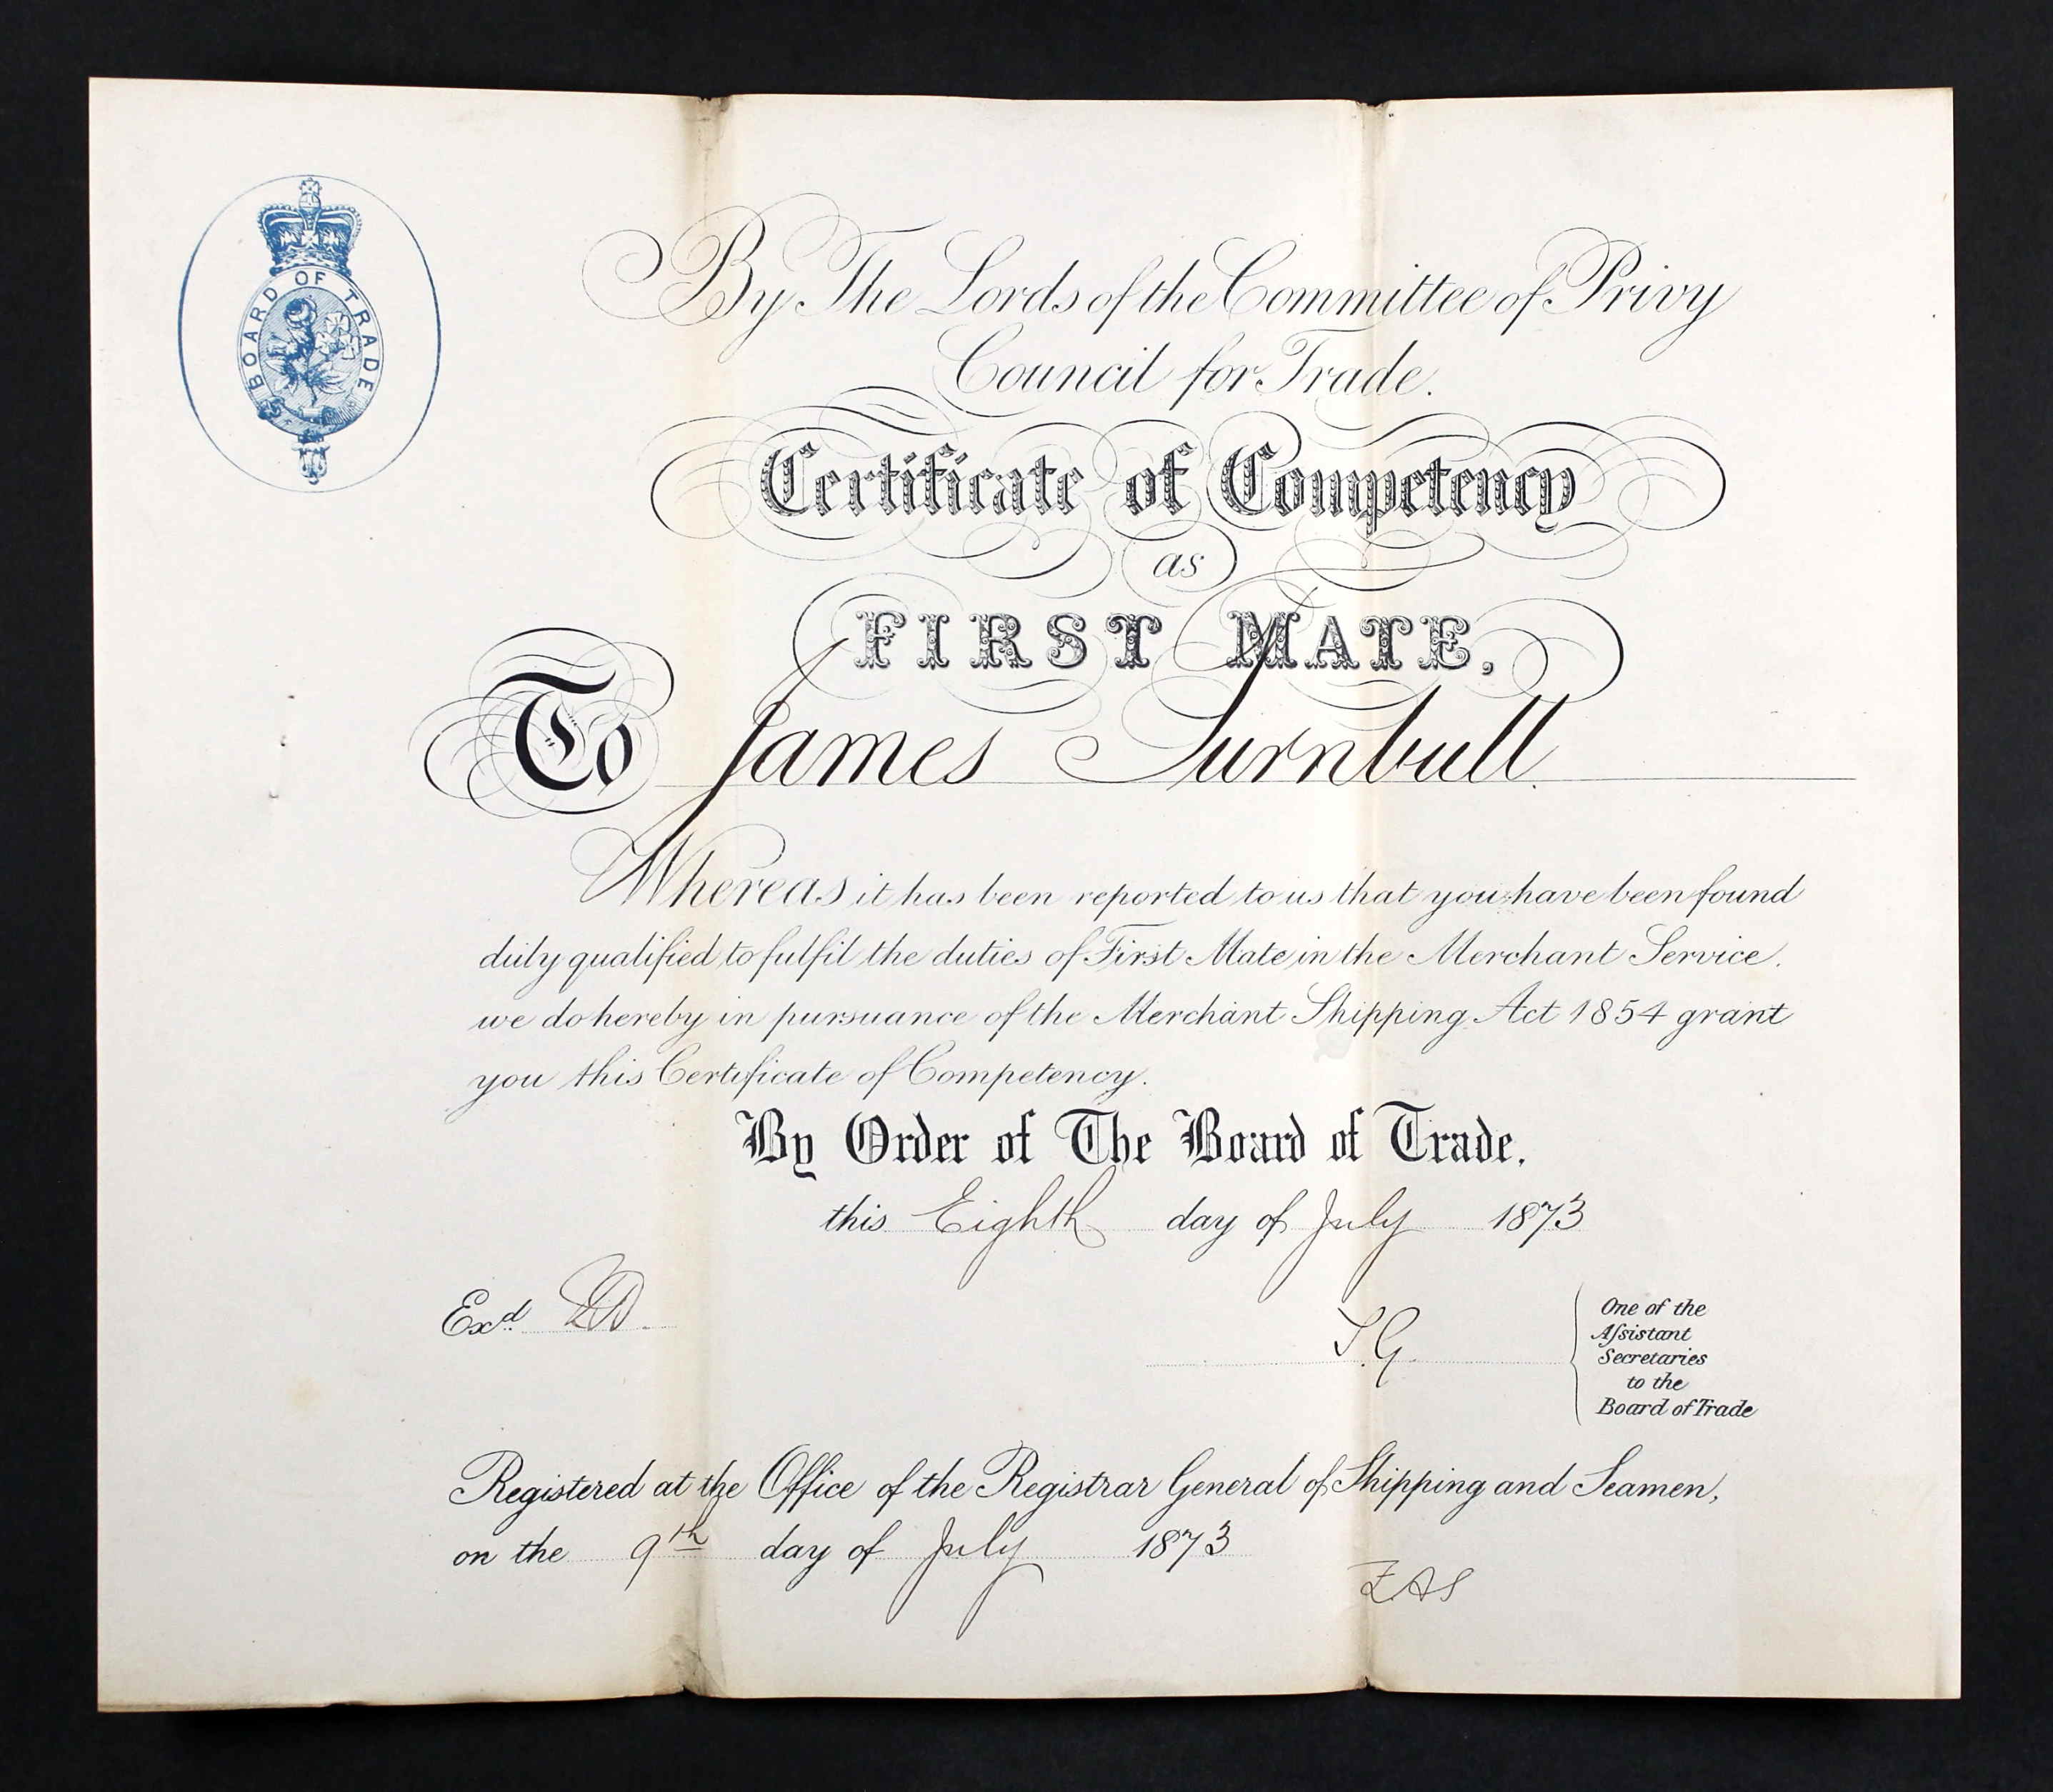 BOARD OF TRADE
By The Lords of the Committee of Privy
Council for Trade.
Certificate of Competency
as
FIRST MATE,
To James Turnbull
Whereas it has been reported to us that you have been found
duly qualified to fulfil the duties of First Mate in the Merchant Service.
we do hereby in pursuance of the Merchant Shipping Act 1854 grant
you this Certificate of Competency.
By Order of The Board of Trade,
this Eighth day of July 1873
Exd.
T.G.
One of the
Aſsistant
Secretaries
to the
Board of Trade
Registered at the Office of the Registrar General of Shipping and Seamen,
on the 9th day of July 1873